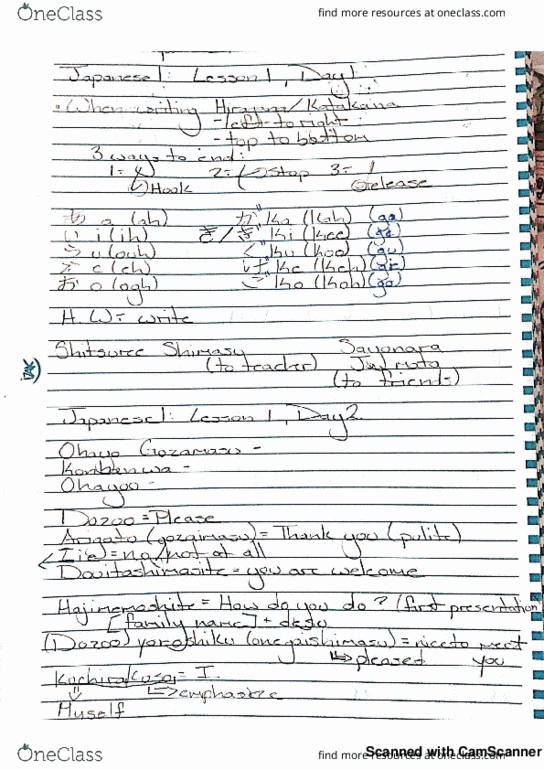 OneClass
find more resources at oneclass.com
Japanese 1: Lesson 1, Day 1
• When writing Hiragana/Katakana
- left to right
- top to bottom
3 ways to end:
1= 2= Stop 3=
Hook Release
あ a (ah) か" ka (kah) (ga)
い i (ih) き/き" ki (kee)
う u (ouh) く" ku (koo) (gu)
え e (eh) け" ke (keh)
お o (ogh) こ" ko (koh) (go)
H.W= write
Shitsuree Shimasu Sayonara
(to teacher) Jaa mata
(to friends)
Japanese 1: Lesson 1, Day 2
Ohayo Gozamasu -
Konbenwa -
Ohayoo -
Dozoo = Please
Arigato (gozaimasu) = Thank you (polite)
Iie) = no/not at all
Dooitashimasite - you are welcome
Hajimemashite = How do you do? (first presentation
[family name] + desu
(Dozoo) yoroshiku (onegaishimasu) = nice to meet
pleased you
Kochirakosoi = I.
emphasize
Myself
OneClass
find more resources at oneclass.com
Scanned with CamScanner